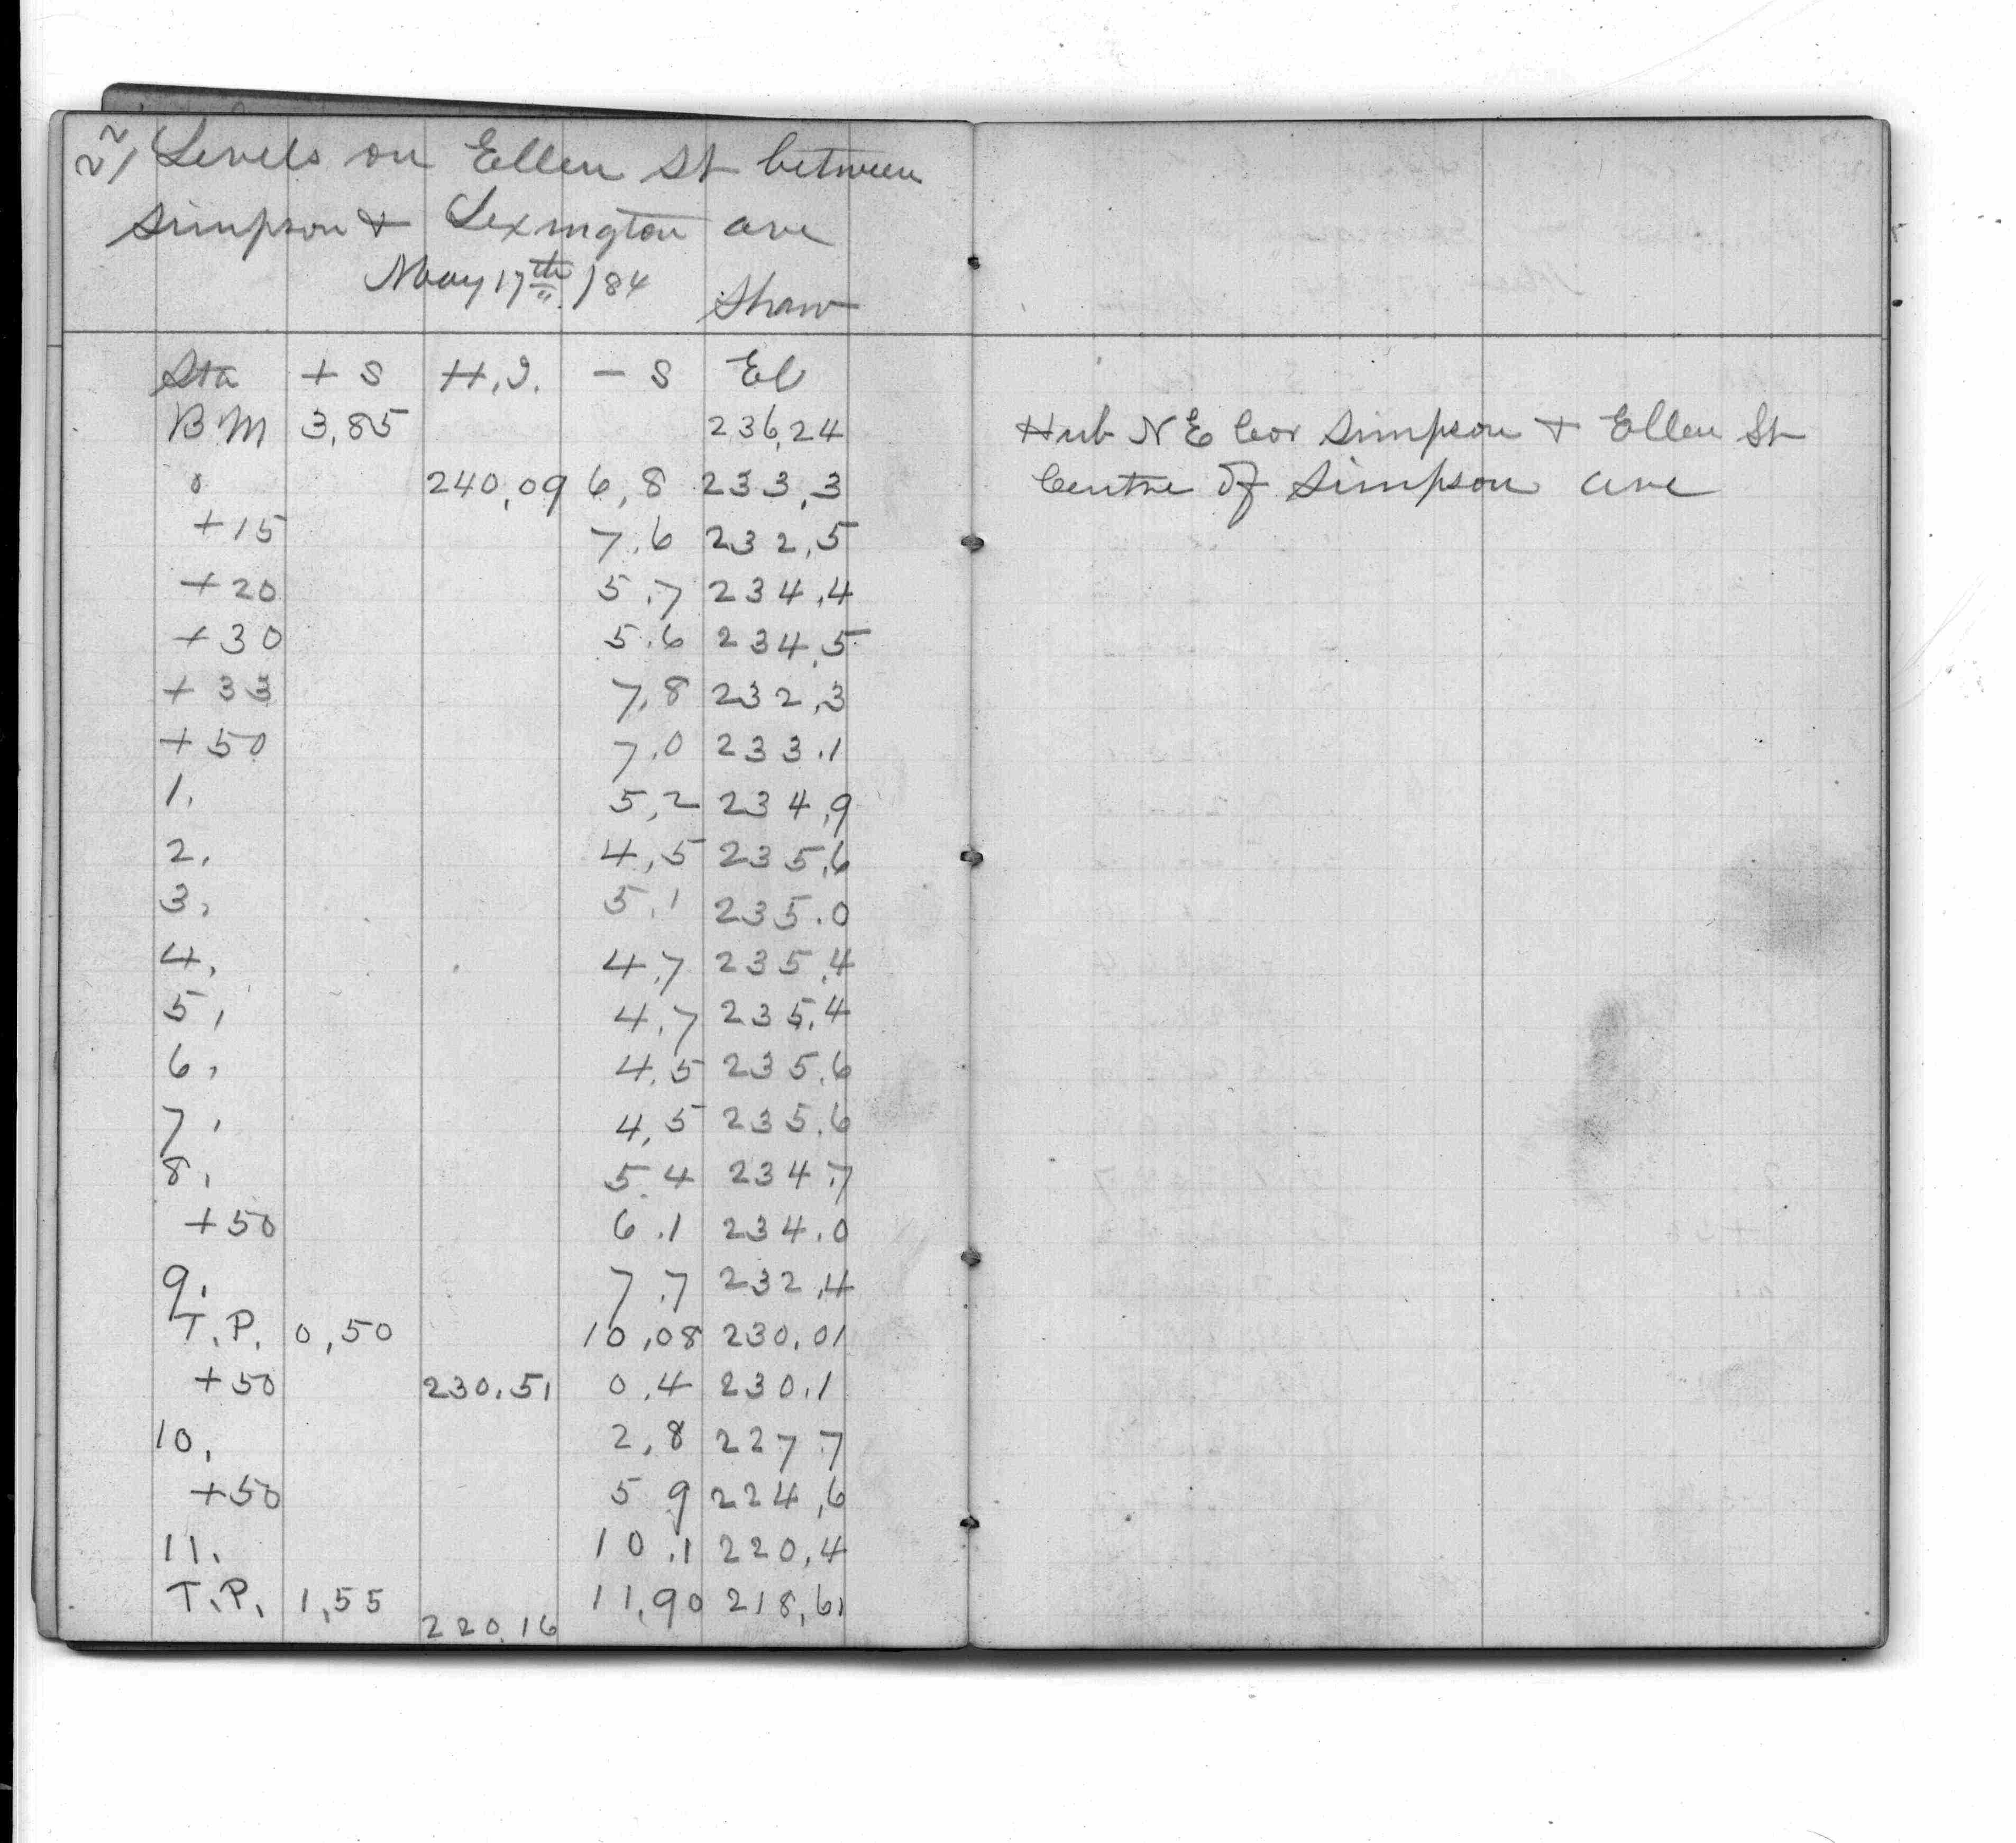 22/ Levels on Ellen St between
Simpson + Lexington ave
May 17th /84 Shaw
Sta + S H.I. - S El
B M 3,85 236,24 Hub N E Cor Simpson + Ellen St
0 240,09 6,8 233,3 Centre of Simpson ave
+15 7.6 232,5
+20 5.7 234.4
+30 5.6 234.5
+33 7,8 232,3
+50 7.0 233.1
1. 5,2 234,9
2. 4,5 235,6
3, 5.1 235.0
4, 4,7 235,4
5, 4,7 235,4
6, 4,5 235,6
7, 4,5 235.6
8, 5.4 234.7
+50 6.1 234.0
9. 7.7 232,4
T.P. 0,50 10,08 230,01
+50 230.51 0,4 230.1
10, 2,8 227.7
+50 5 9 224,6
11. 10.1 220,4
T.P. 1,55 11,90 218,61
220,16